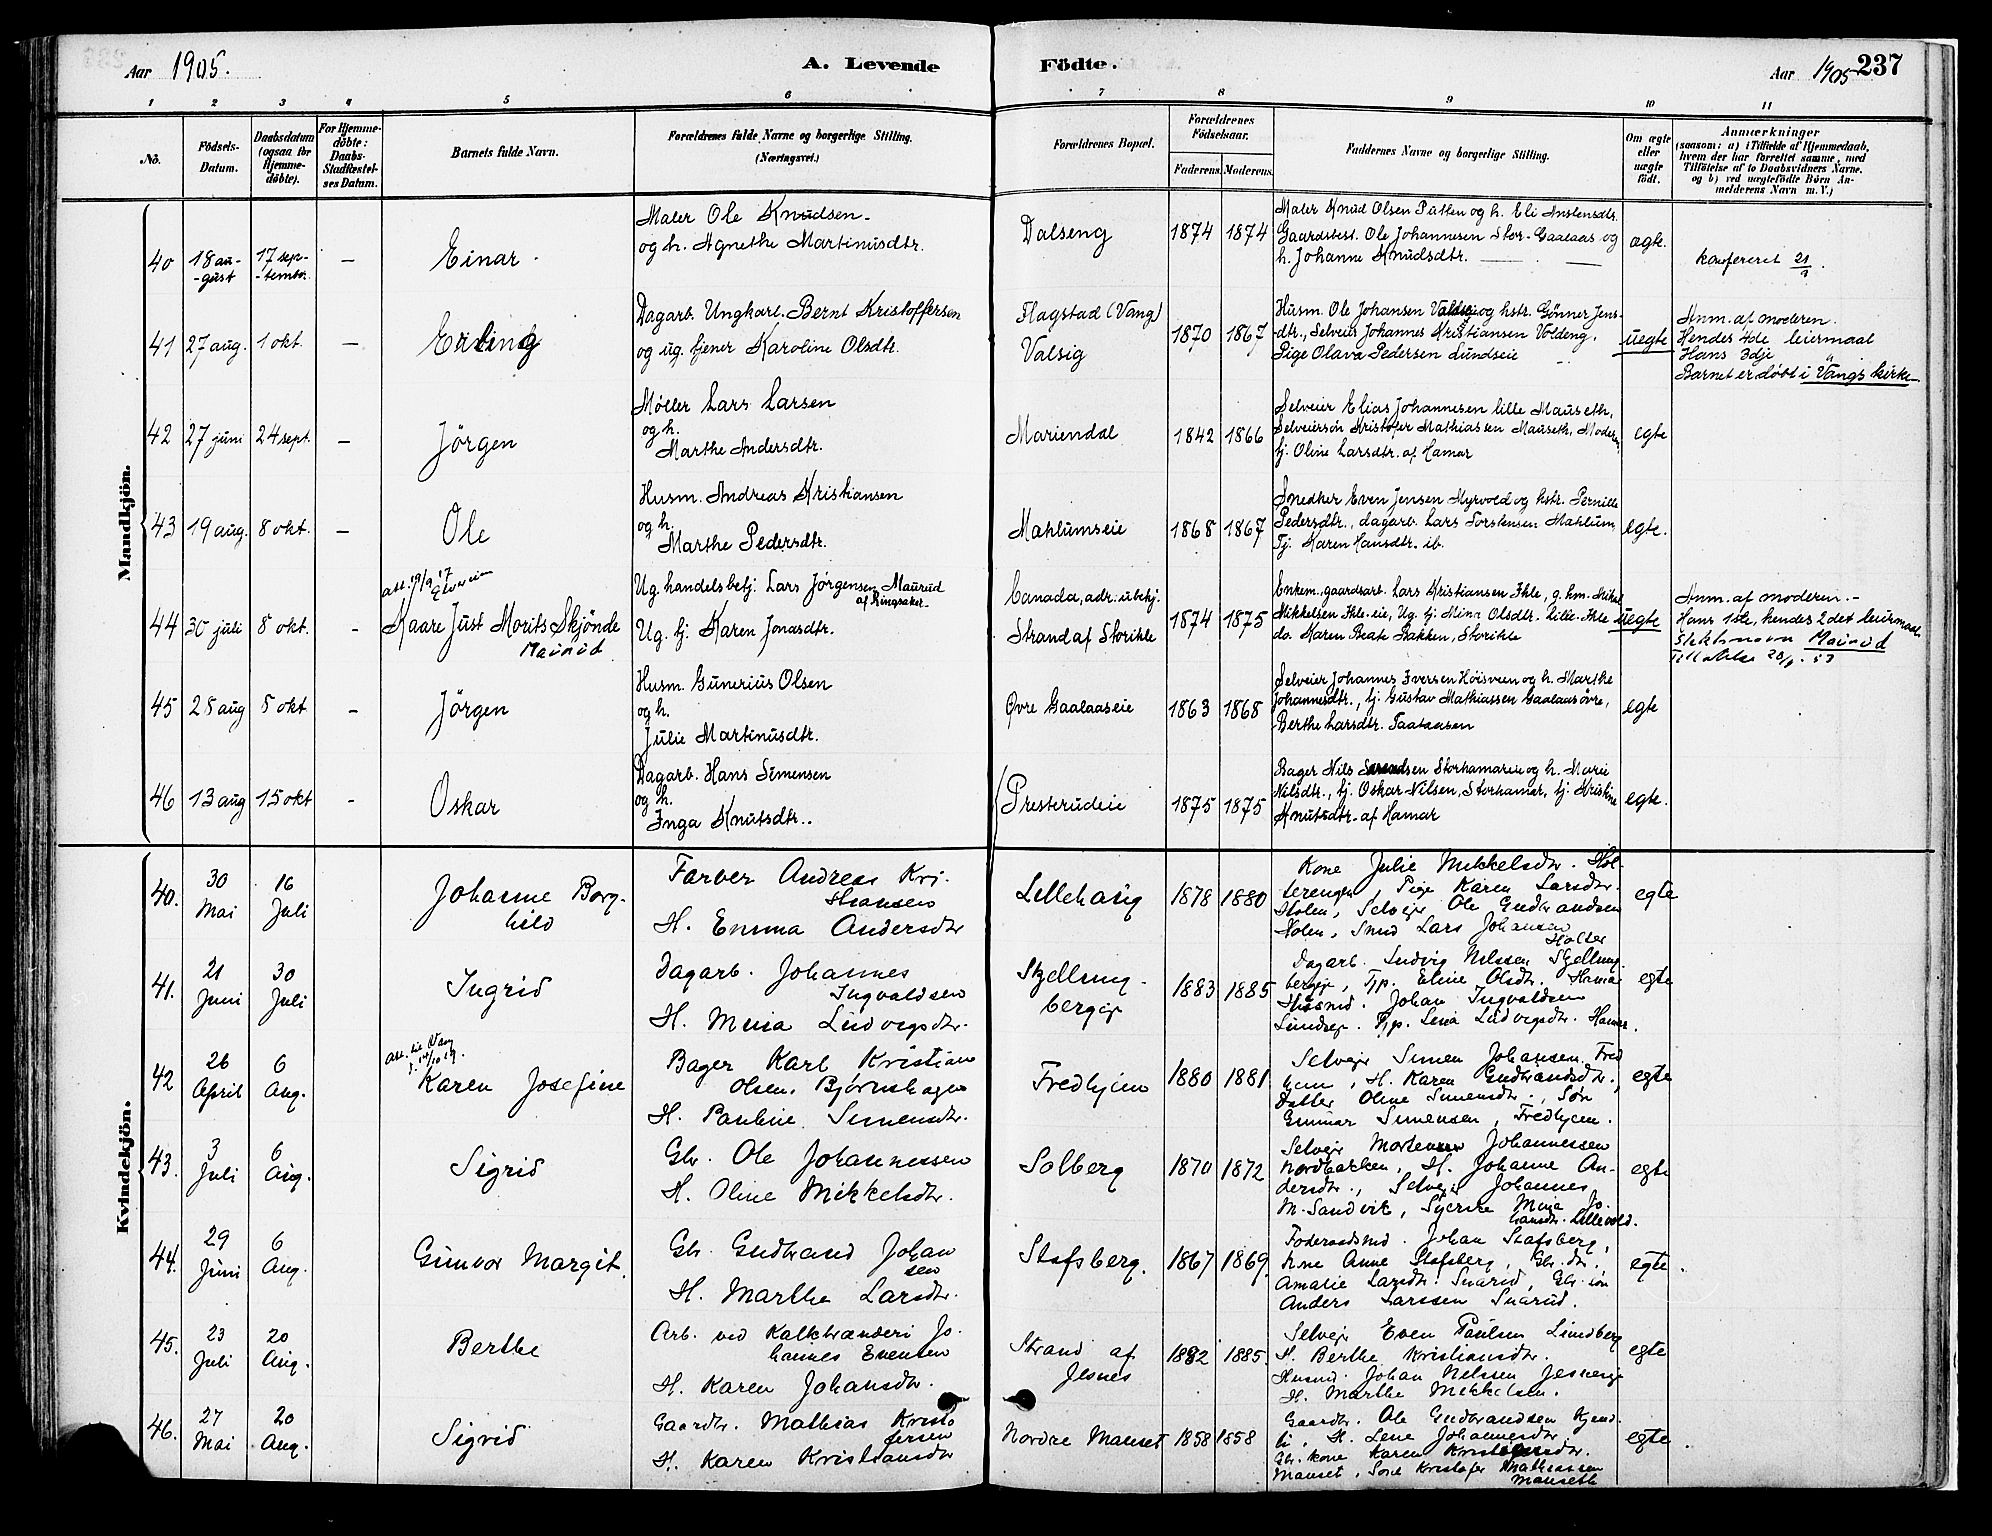 Aar 1905.
A. Levende Födte.
Aar 1905
237
1 2 3 4 5 6 7 8 9 10 11
No.
Födsels-Datum.
Daabsdatum (ogsaa for Hjemme-döbte).
For Hjemme-döbte: Daabs-Stadfæstel-ses Datum.
Barnets fulde Navn.
Forældrenes fulde Navne og borgerlige Stilling. (Næringsvei.)
Forældrenes Bopæl.
Forældrenes Födselsaar.
Faderens. Moderens.
Faddernes Navne og borgerlige Stilling.
Om ægte eller uægte födt.
Anmærkninger
(saasom: a) i Tilfælde af Hjemmedaab,
hvem der har forrettet samme, med
Tilföielse af to Daabsvidners Navne.
og b) ved uægtefödte Börn An-
melderens Navn m. V.)
Mandkjön.
40 18 au-gust 17 sep-tembr. — Einar.
Maler Ole Knudsen
og h. Agnethe Martinusdtr.
Dalseng 1874 1874
Maler Knud Olsen Putten og h. Eli Anstensdtr.
Gaardbest. Ole Johannesen Stor-Gaalaas og
h. Johanne Knudsdtr.
ægte.
konfereret 21/9.
41 27 aug. 1 okt. — Erling
Dagarb. Ungkarl. Bernt Kristoffersen
og ug. tjener Karoline Olsdtr.
Flagstad (Vang)
Valsig
1870 1867
Husm. Ole Johansen Valsig og hstr. Gønner Jens-
dtr., Selveier Johannes Kristiansen Voldeng,
Pige Olava Pedersen Lundseie
uegte
Anm. af moderen.
Hendes 4de leiermaal
Hans 3dje
Barnet er døbt i Vangs kirke
42 27 juni 24 sept. — Jörgen
Møller Lars Larsen
og h.
Marthe Andersdtr.
Mariendal 1842 1866
Selveier Elias Johannesen lille Mauseth,
Selveiersøn Kristofer Mathiassen Mauseth, Moderen,
tj. Oline Larsdtr. af Hamar
egte
43 19 aug. 8 okt. — Ole
Husm. Andreas Kristiansen
og h.
Marthe Pedersdtr.
Mahlumseie 1868 1867
Snedker Even Jensen Myrvold og hstr. Pernille
Pedersdtr., dagarb. Lars Torstensen Mahlum,
Tj. Karen Hansdtr. ib.
egte.
att. 19/9 17
44 30 juli 8 okt. - Kaare Just Morits Skjönde
Maurud
Ug. handelsbetj. Lars Jørgensen Maurud
af Ringsaker
Ug. tj. Karen Jonasdtr.
Canada, adr. ubekj.
Strand af Storihle
1874 1875
Enkem. gaardsarb. Lars Kristiansen Ihle, g. hm. Mikkel
Mikkelsen Ihle-eie, Ug. tj. Mina Olsdtr. Lille-Ihle
do. Karen Beate Bakken, Storihle
uegte
Anm. af moderen.-
Hans 1ste, hendes 2det leiermaal.
Slektsnavn Maurud
45 28 aug 8 okt — Jörgen
Husm. Gunerius Olsen
og h.
Julie Martinusdtr.
Øvre Gaalaaseie 1863 1868
Selveier Johannes Iversen Höisveen og h. Marthe
Johannesdtr., tj. Gustav Mathiassen Gaalaas øvre,
Berthe Larsdtr. Taataasen
egte
46 13 aug 15 okt - Oskar
Dagarb. Hans Simensen
og h.
Inga Knutsdtr.
Presterudeie 1875 1875
Bager Nils Storhamareie og h. Marie
Nilsdtr., tj. Oskar Nilsen, Storhamar, tj. Kristine
Knutsdtr. af Hamar
egte.
Kvindekjön.
40. 30 Mai 16 Juli Johanne Borg-
hild
Farver Andreas Kri-
stiansen
H. Emma Andersdtr
Lillehaug 1878 1880
Kone Julie Mikkelsdtr. Hol-
terengen, Pige Karen Larsdtr.
Stolen, Selvejer Ole Gudbrandsen
Holen, Smed Lars Johansen
Holter
egte
41. 21 Juni 30 Juli Ingrid
Dagarb. Johannes
Ingvaldsen
H. Mina Ludvigsdtr.
Skjellung-
bergeje
1883 1885
Dagarb. Ludvig Nilssen Skjellung-
bergeje, Tjp. Eline Olsdtr. Hamar
Husmd. Johan Ingvaldsen
Lundseje. Tjp. Lena Ludvigsdtr. Hamar.
egte
att. til Vang 14/10 19.
42 26 April 6 Aug. Karen Josefine
Bager Karl Kristian
Olsen. Bjørnshagen
H. Pauline Simensdtr.
Fredhjem 1880 1881
Selvejer Simen Johansen Fred
hjem, H. Karen Gudbrandsdtr.,
Datter Oline Simensdtr., Søn
Gunnar Simensen, Fredhjem.
egte
43. 3 Juli 6 Aug. Sigrid
Gbr. Ole Johannessen
H. Oline Mikkelsdtr.
Solberg 1870 1872
Selvejer Morten Johannessen
Nordbakken, H. Johanne An-
dersdtr., Selvejer Johannes
M. Sandvik, Syerske Mina Jo-
hansdtr. Lillevold.
egte
44. 29 Juni 6 Aug. Gunvor Margit.
Gbr. Gudbrand Johan
sen
H. Marthe Larsdtr.
Stafsberg. 1867 1869.
Föderaadsmd. Johan Stafsberg,
Kone Anne Stafsberg, Gbr. dtr.,
Amalie Larsdtr. Snarud, Gbr. søn
Anders Larssen Snarud.
egte.
45. 23 Juli 20 Aug. Berthe
Arb. ved Kalkbrænderi Jo-
hannes Evensen
H. Karen Johansdtr.
Strand af
Jesnes
1882 1885.
Selvejer Even Paulsen Lundberg
H. Berthe Kristiansdtr.
Husmd. Johan Nilssen Jesneseje
H. Marthe Mikkelsen.
egte
46. 27 Mai 20 Aug. Sigrid
Gaardbr. Mathias Kristo
fersen
H. Karen Kristiansdtr
Nordre Mauset 1858 1858
Gaardbr. Ole Gudbrandsen Kjend-
li, H. Lene Johannesdtr.
Gbr. kone Karen
Mauset, Søn Kristofer Mathiassen
Mauseth
egte.